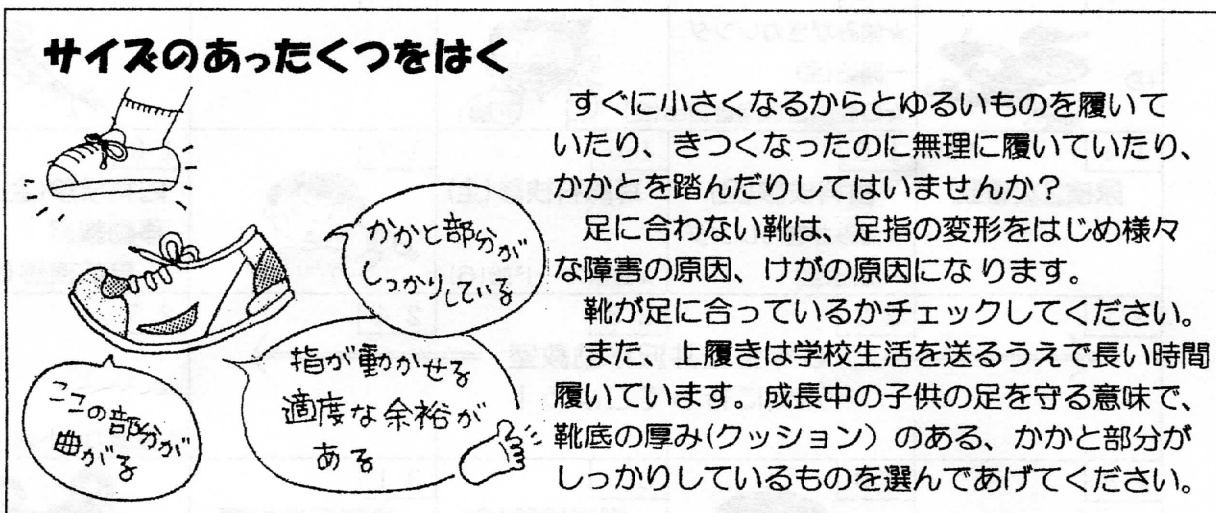 サイズのあったくつをはく
すぐに小さくなるからとゆるいものを履いて
いたり、きつくなったのに無理に履いていたり、
かかとを踏んだりしてはいませんか？
足に合わない靴は、足指の変形をはじめ様々
な障害の原因、けがの原因になります。
靴が足に合っているかチェックしてください。
また、上履きは学校生活を送るうえで長い時間
履いています。成長中の子供の足を守る意味で、
靴底の厚み(クッション）のある、かかと部分が
しっかりしているものを選んであげてください。
かかと部分が
しっかりしている
指が動かせる
適度な余裕が
ある
ここの部分が
曲がる